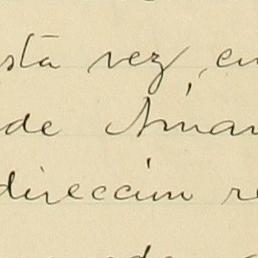 sta vez, en
de Aman
direccion re